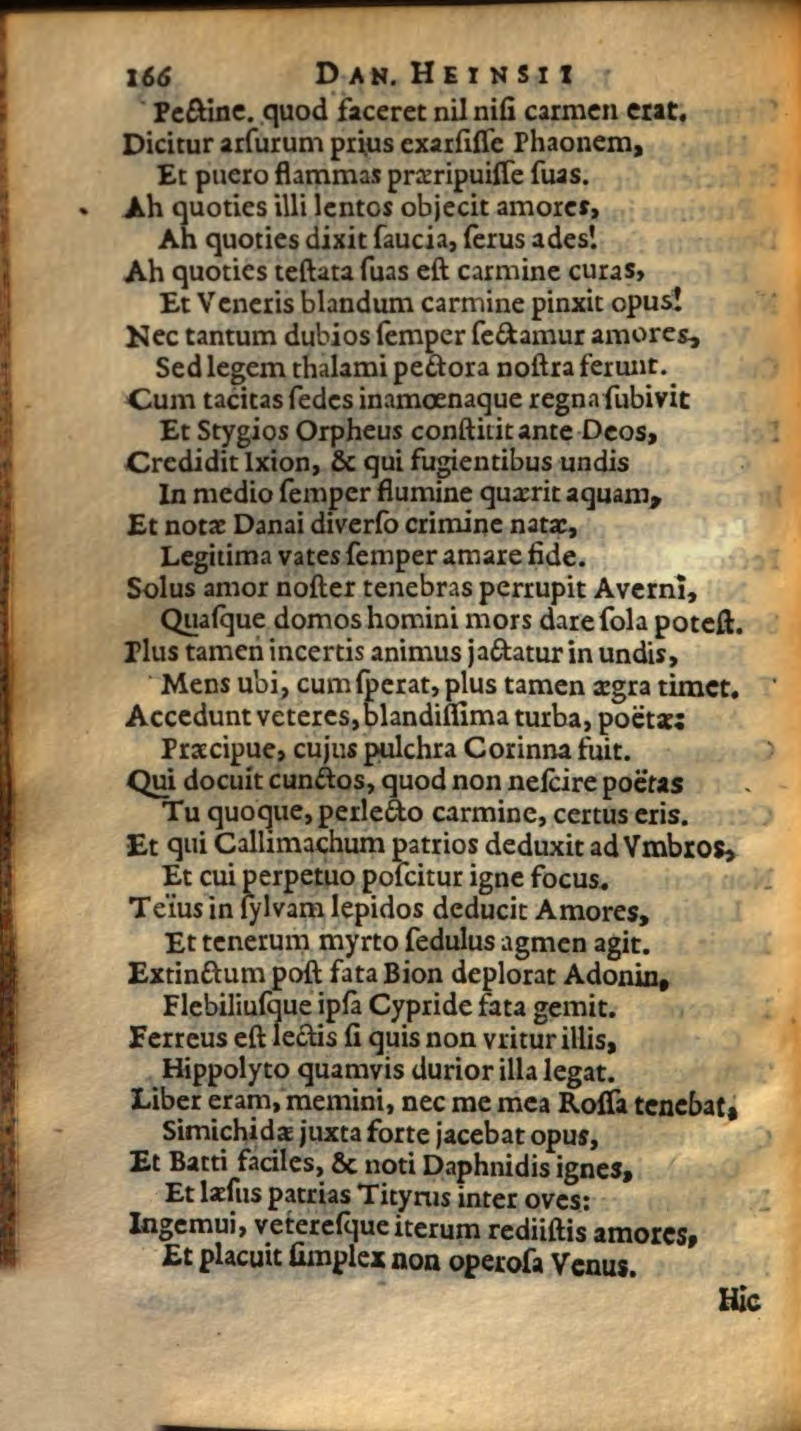 166 DAN. HEINSII
Pectine. quod faceret nil niſi carmen erat.
Dicitur arſurum prius exarſiſſe Phaonem,
Et puero flammas præripuiſſe ſuas.
Ah quoties illi lentos objecit amores,
Ah quoties dixit ſaucia, ſerus ades!
Ah quoties teſtata ſuas eſt carmine curas,
Et Veneris blandum carmine pinxit opus!
Nec tantum dubios ſemper ſectamur amores,
Sed legem thalami pectora noſtra ferunt.
Cum tacitas ſedes inamœnaque regna ſubivit
Et Stygios Orpheus conſtitit ante Deos,
Credidit Ixion, & qui fugientibus undis
In medio ſemper flumine quærit aquam,
Et notæ Danai diverſo crimine natæ,
Legitima vates ſemper amare fide.
Solus amor noſter tenebras perrupit Avernî,
Quaſque domos homini mors dare ſola poteſt.
Plus tamen incertis animus jactatur in undis,
Mens ubi, cum ſperat, plus tamen ægra timet.
Accedunt veteres, blandiſſima turba, poëtæ:
Præcipue, cujus pulchra Corinna fuit.
Qui docuit cunctos, quod non neſcire poëtas
Tu quoque, perlecto carmine, certus eris.
Et qui Callimachum patrios deduxit ad Vmbros,
Et cui perpetuo poſcitur igne focus.
Teïus in ſylvam lepidos deducit Amores,
Et tenerum myrto ſedulus agmen agit.
Extinctum poſt fata Bion deplorat Adonin,
Flebiliuſque ipſa Cypride fata gemit.
Ferreus eſt lectis ſi quis non vritur illis,
Hippolyto quamvis durior illa legat.
Liber eram, memini, nec me mea Roſſa tenebat,
Simichidæ juxta forte jacebat opus,
Et Batti faciles, & noti Daphnidis ignes,
Et læſus patrias Tityrus inter oves:
Ingemui, vetereſque iterum rediiſtis amores,
Et placuit ſimplex non operoſa Venus.
Hic